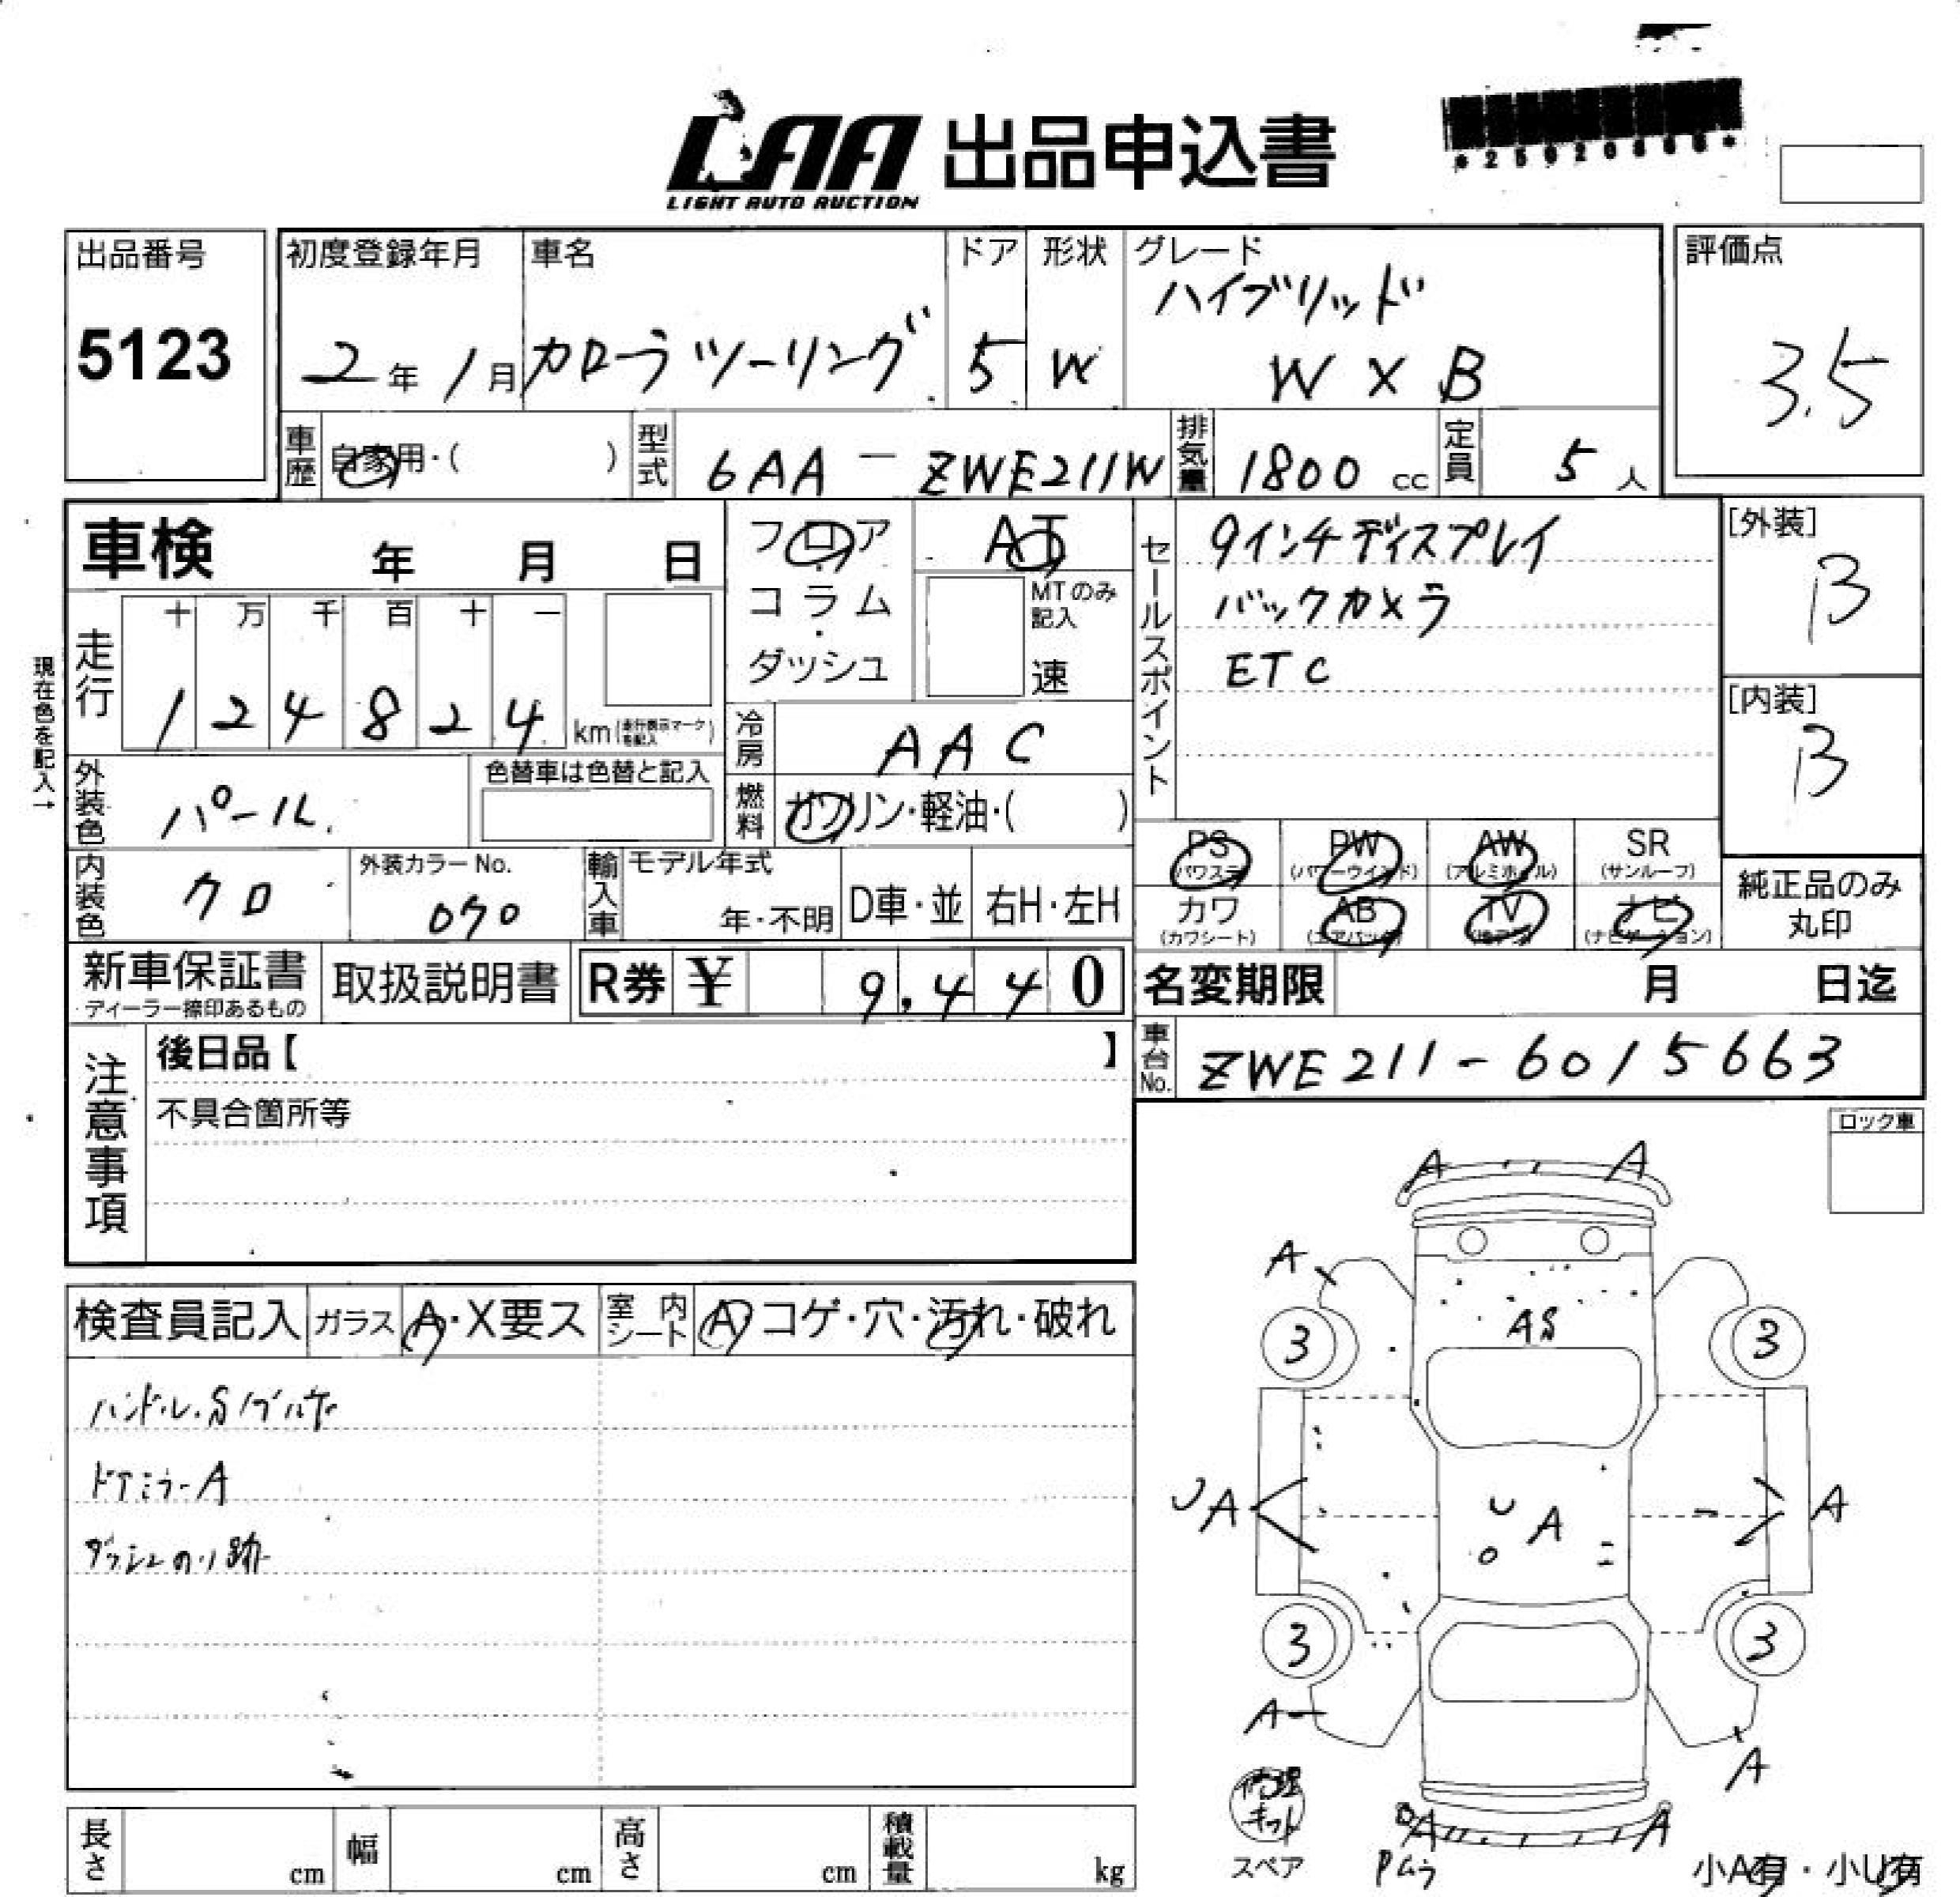 LAA 出品申込書
LIGHT AUTO AUCTION
出品番号
5123
初度登録年月
2年 1月
車名
カローラツーリング
ドア
5
形状
W
グレード
ハイブリッド
W X B
評価点
3.5
車歴 自家用・( )
型式 6AA - ZWE211W
排気量 1800 cc
定員 5 人
車検 年 月 日
フロア
コラム・
ダッシュ
AT
MTのみ
記入
速
セールスポイント
9インチディスプレイ
バックカメラ
ETC
[外装]
B
[内装]
B
現在色を記入→
走行
十 万 千 百 十 一
1 2 4 8 2 4 km(走行表示マークを記入)
冷房 AAC
外装色 パール
色替車は色替と記入
燃料 ガソリン・軽油・( )
内装色 クロ
外装カラーNo.
070
輸入車 モデル年式
年・不明
D車・並
右H・左H
PS
(パワステ)
PW
(パワーウインド)
AW
(アルミホイル)
SR
(サンルーフ)
カワ
(カワシート)
AB
(エアバック)
TV
ナビ
(ナビゲーション)
純正品のみ
丸印
新車保証書
ディーラー捺印あるもの
取扱説明書
R券 ¥ 9,440
名変期限 月 日迄
車台No. ZWE211-6015663
注意事項
後日品【 】
不具合箇所等
ロック車
検査員記入
ガラス A・X要ス
室内シート A コゲ・穴・汚れ・破れ
ドアミラーA
ダッシュのり跡
A A
A
AS
3 3
UA
U A
A
3 3
A
A
A A
修理
キット
スペア
Pムラ
小A有・小U有
長さ cm
幅 cm
高さ cm
積載量 kg